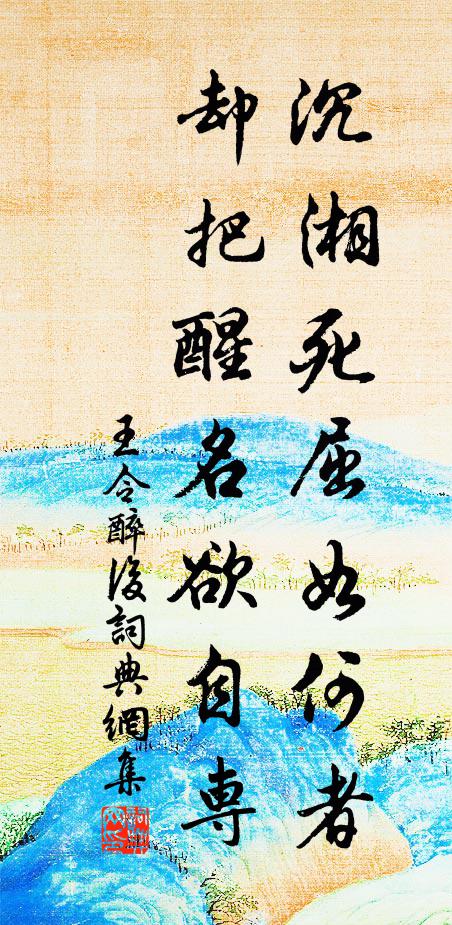 沉湘死屈如何者
却把醒名欲自専
王令醉後詞典網集